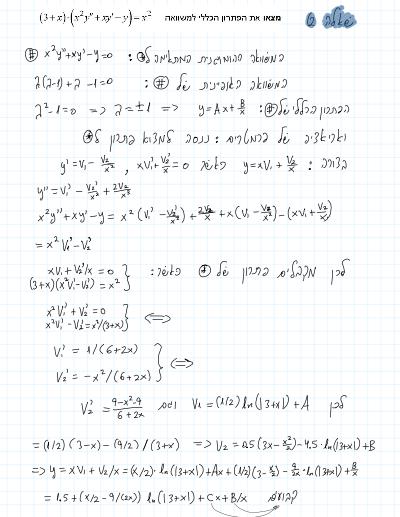 שאלה 6
מצאו את הפתרון הכללי למשוואה (3+x)·(x²y″+xy′−y)=x²
המשוואה ההומוגנית המתאימה ל⊛: x²y″+xy′−y=0 (#)
המשוואה האופיינית של (#): λ(λ−1)+λ−1=0
הפתרון הכללי של (#): λ²−1=0 => λ=±1 => y=Ax+B/x
ואריאציה של הפרמטרים: ננסה למצוא פתרון ל⊛
בצורה: y=xV₁+V₂/x כאשר xV₁′+V₂′/x=0 , y′=V₁−V₂/x²
y″=V₁′−V₂′/x²+2V₂/x³
x²y″+xy′−y = x²(V₁′−V₂′/x²)+2V₂/x+x(V₁−V₂/x²)−(xV₁+V₂/x)
=x²V₁′−V₂′
לכן מקבלים פתרון של ⊛ כאשר: xV₁′+V₂′/x=0
(3+x)(x²V₁′−V₂′)=x² }
x²V₁′+V₂′=0
x²V₁′−V₂′=x²/(3+x) } <=>
V₁′=1/(6+2x)
V₂′=−x²/(6+2x) } <=>
לכן V₁=(1/2)ln(|3+x|)+A ואם V₂′=(9−x²−9)/(6+2x)
=(1/2)(3−x)−(9/2)/(3+x) => V₂=0.5(3x−x²/2)−4.5·ln(|3+x|)+B
=> y=xV₁+V₂/x=(x/2)·ln(|3+x|)+Ax+(1/2)(3−x/2)−9/2x·ln(|3+x|)+B/x
=1.5+(x/2−9/(2x))ln(|3+x|)+Cx+B/x קבועים